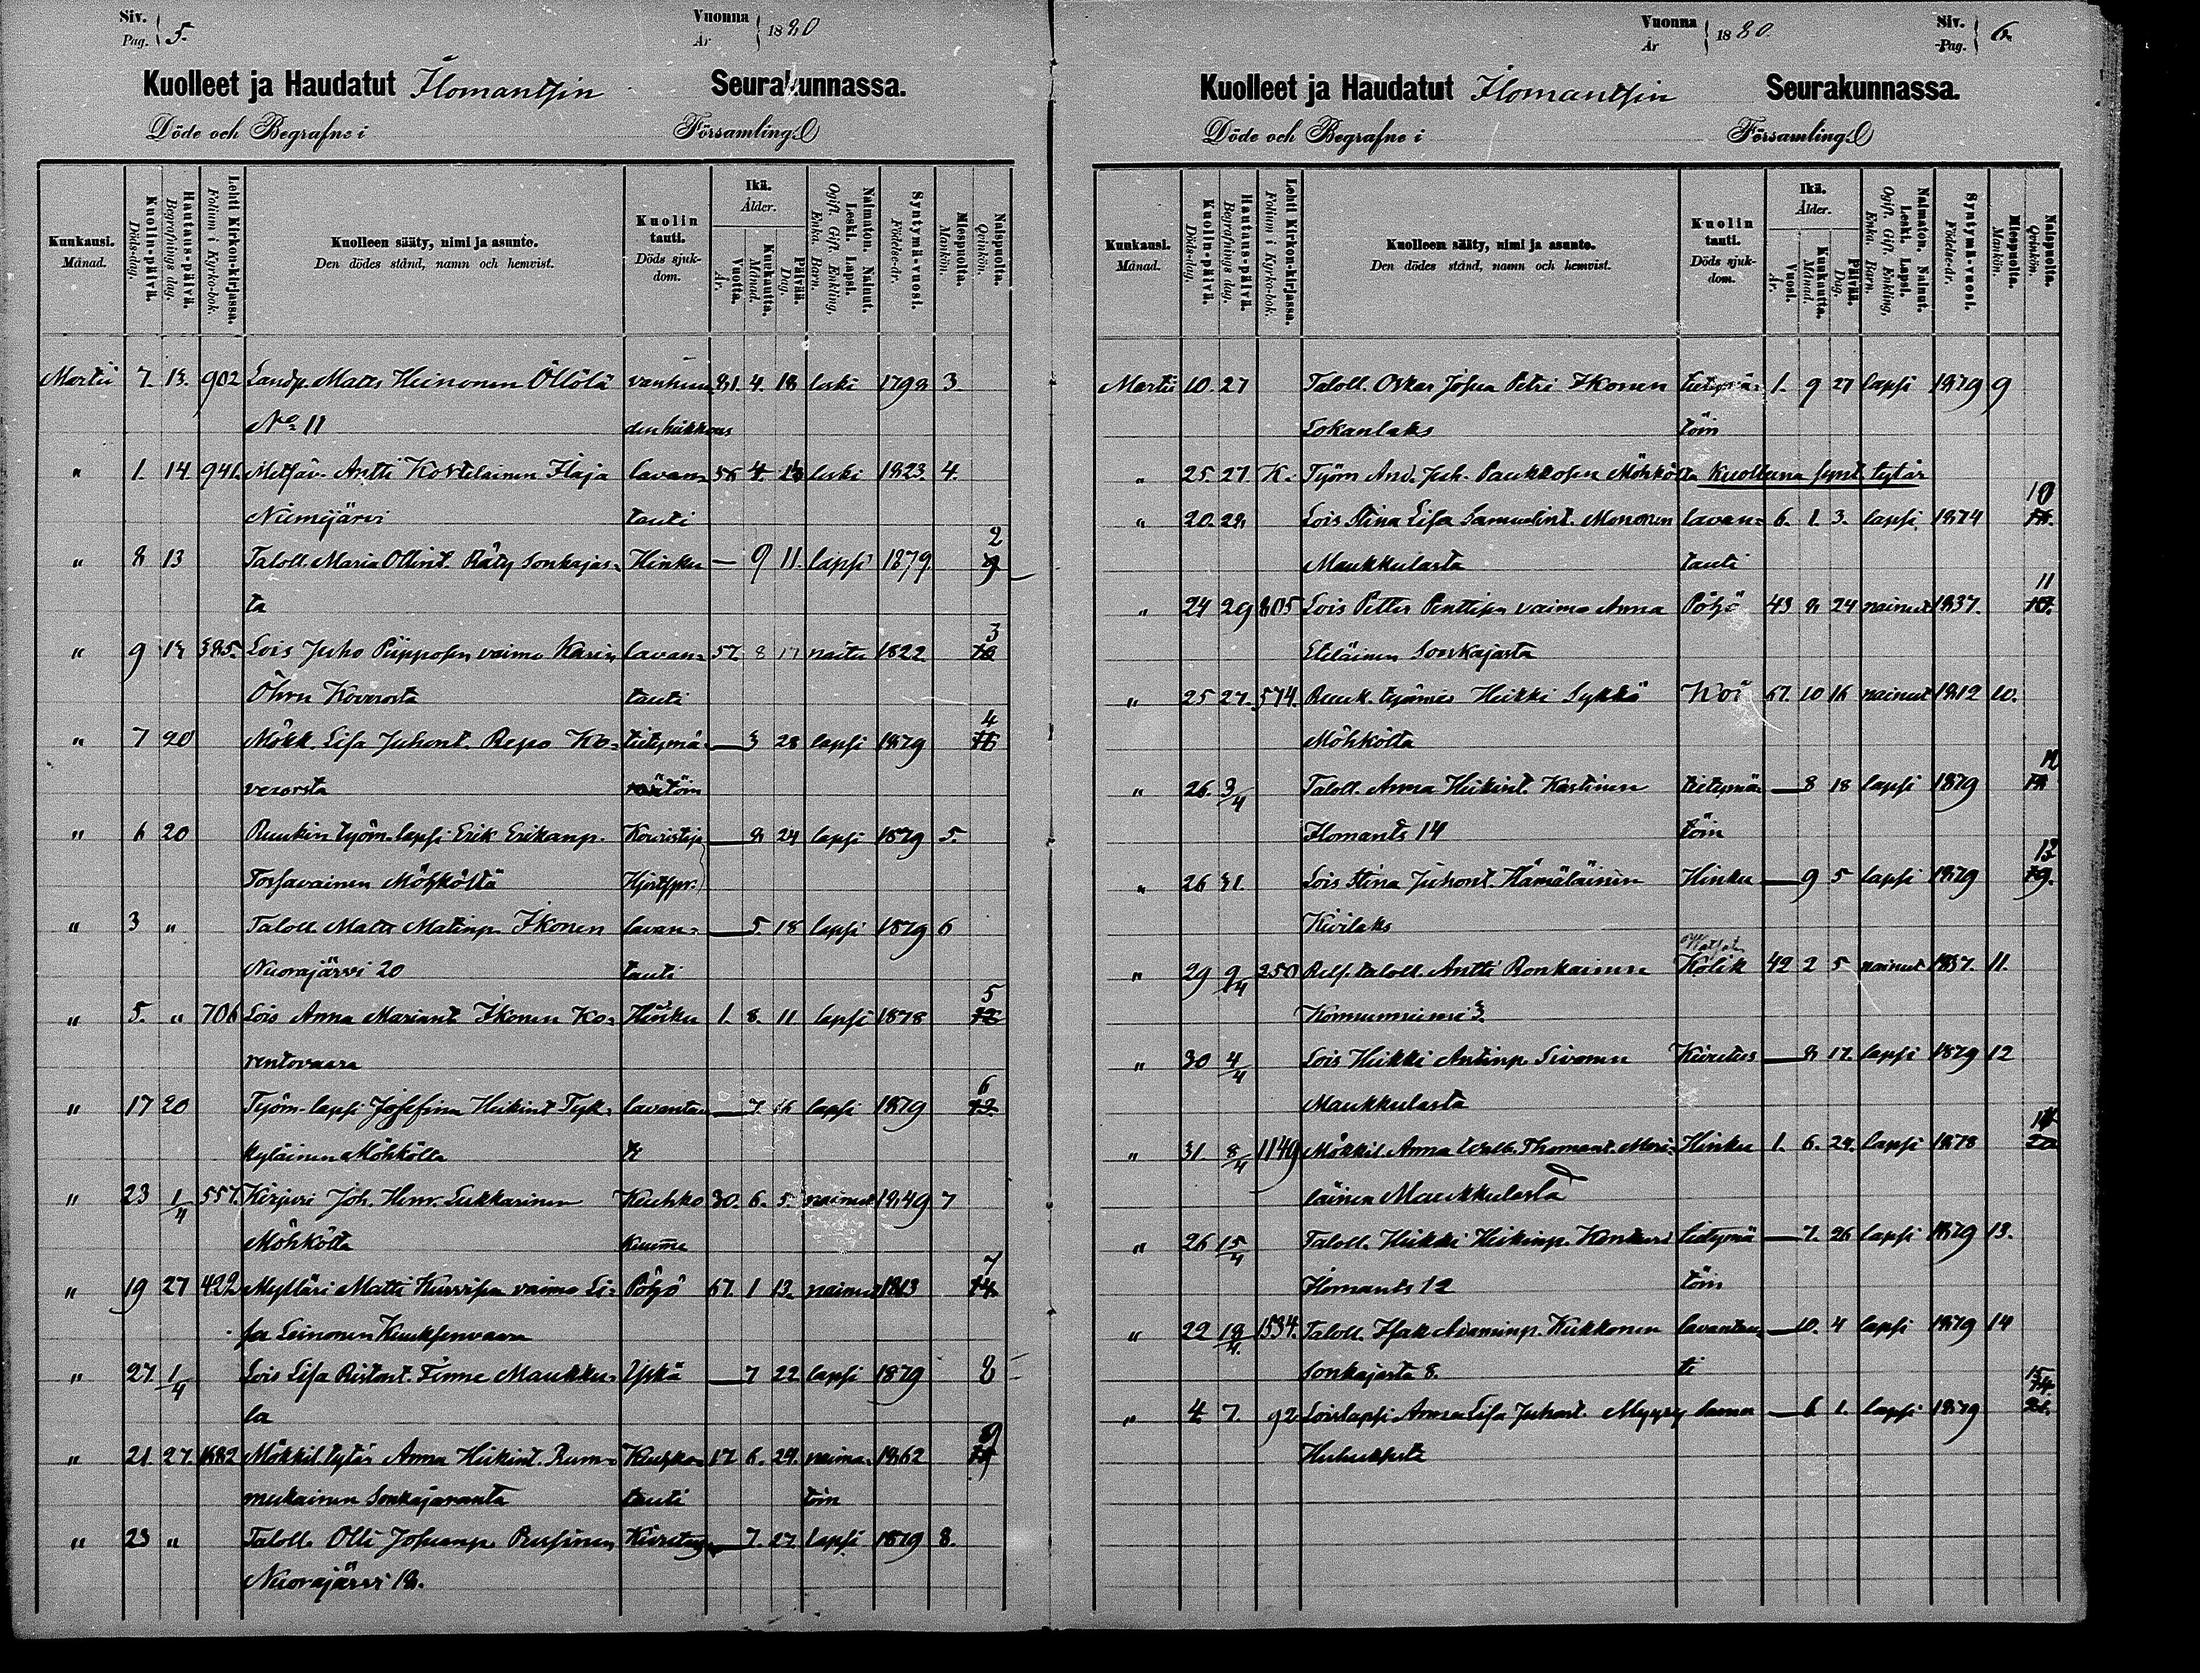 Siv. Pag. 5.
Vuonna År 1880
Kuolleet ja Haudatut Ilomantsin Seurakunnassa.
Döde och Begrafne i Församling.
Kuukausi. Månad.
Kuolin-päivä. Döds-dag.
Hautaus-päivä. Begrafnings dag.
Lehti Kirkon-kirjassa. Folium i Kyrko-bok.
Kuolleen sääty, nimi ja asunto. Den dödes stånd, namn och hemvist.
Kuolin tauti. Döds sjukdom.
Ikä. Ålder.
Vuotta. År.
Kuukautta. Månad.
Päivää. Dag.
Naimaton. Nainut. Leski. Lapsi. Ogift. Gift. Enkling. Enka. Barn.
Syntymä-vuosi. Födelse-år.
Miespuolta. Mankön.
Naispuolta. Qvinkön.
Martii 7. 13. 902 Landp. Matts Heinonen Öllölä vanhuu 81. 4. 18 leski 1798 3.
No 11 denheikkous
" 1. 14. 941. Metsäv. Antti Kortelainen Ilaja lavan= 56 4. 13 leski 1823. 4.
Niemijärvi tauti
" 8 13 Taloll. Maria Ollint. Räty Sonkajas= Hinku — 9 11. lapsi 1879. 2
ta
" 9 13 385. Lois Juho Piipposen vaimo Karin lavan= 57. 8 17 naitu 1822. 3
Öhrn Koverosta tauti
" 7 20 Mökk. Lisa Juhont. Repo Ko= tietymä= — 3 28 lapsi 1879 4
verosta töin
" 6 20 Ruukin työm. lapsi Erik Erikanp. Kouristus — 8 24 lapsi 1879 5.
Torvavainen Möhköltä
" 3 " Taloll. Matts Matinp. Ikonen lavan= — 5. 18 lapsi 1879 6
Nuorajärvi 20 tauti
" 5. " 706 Lois Anna Mariant. Ikonen Ko= Hinku 1. 8. 11 lapsi 1878 5
rentovaara
" 17 20 Työm. lapsi Josefina Heikint. Tyk= lavantau — 7. 16 lapsi 1879 6
kyläinen Möhkölta ti
" 23 1/4 557. Kirjuri Joh. Henr. Lukkarinen Keuhko 30. 6. 5. nainut 1849 7
Möhköltä kuume
" 19 27 422 Mylläri Matti Kurvisen vaimo Li= Pöhö 67. 1 13. nainut 1813 7
sa Leinonen Kuuksenvaara
" 27. 1/4 Lois Lisa Ristont. Timne Maukku= Yskä — 7 22 lapsi 1879 8
la
" 21. 27. 1882 Mökkil. tytär Anna Heikint. Rum= Keuhko= 17 6. 29. naima= 1862 9
mukainen Sonkajanranta tauti töin
" 23 " Taloll. Olli Josuanp. Pussinen Kiiretus — 7. 27. lapsi 1879 8.
Nuorajärvi 18.
Vuonna År 1880.
Siv. Pag. 6.
Kuolleet ja Haudatut Ilomantsin Seurakunnassa.
Döde och Begrafne i Församling.
Kuukausi. Månad.
Kuolin-päivä. Döds-dag.
Hautaus-päivä. Begrafnings dag.
Lehti Kirkon-kirjassa. Folium i Kyrko-bok.
Kuolleen sääty, nimi ja asunto. Den dödes stånd, namn och hemvist.
Kuolin tauti. Döds sjukdom.
Ikä. Ålder.
Vuosi. År.
Kuukautta. Månad.
Päivää. Dag.
Naimaton. Nainut. Leski. Lapsi. Ogift. Gift. Enkling. Enka. Barn.
Syntymä-vuosi. Födelse-år.
Miespuolta. Mankön.
Naispuolta. Qvinkön.
Martii 10. 27 Taloll. Oskar Josua Petri Ikonen tietymä= 1. 9 27 lapsi 1879 9
Lokanlaks töin
" 25. 27. K. Työm And. Juh. Paukkosen Möhköltä Kuolluna synt. tytär
" 20. 28. Lois Stina Lisa Samuelint. Mononen lavan= 6. 1. 3. lapsi 1874 10
Maukkulasta tauti
" 24 29 805 Lois Petter Penttisen vaimo Anna Pöhö 43 8 24 nainut 1837. 11
Eteläinen Sonkajasta
" 25 27. 574. Ruuk. työmies Heikki Sykkö Koi 67. 10 16 nainut 1812 10.
Möhköltä
" 26. 3/4 Taloll. Anna Heikint. Kastinen tietymä= — 8 18 lapsi 1879 12
Ilomants 14 töin
" 26 31. Lois Stina Juhont. Hämäläinen Hinku — 9 5 lapsi 1879 13
Kivilaks
" 29 9/4 250 Rels. taloll. Antti Ronkainen Kolik 42 2 5 nainut 1837. 11.
Konnunniemi 3.
" 30 4/4 Lois Heikki Antinp. Sivonen Kiiretus — 8 17. lapsi 1879 12
Maukkulasta
" 31. 8/4 1149 Mökkil. Anna Walb. Thomant. Meri= Hinku 1. 6. 24. lapsi 1878 14
läinen Maukkulasta
" 26 15/4 Taloll. Heikki Heikinp. Kontturi tietymä — 7. 26 lapsi 1879 13.
Ilomants 12 töin
" 22 18/4 1534. Taloll. Isak Adaminp. Kukkonen lavantau= — 10. 4 lapsi 1879 14
Sonkajasta 8. ti
" 4. 7. 92 Loislapsi Anna Lisa Juhont. Myyry — 6 1. lapsi 1879 15